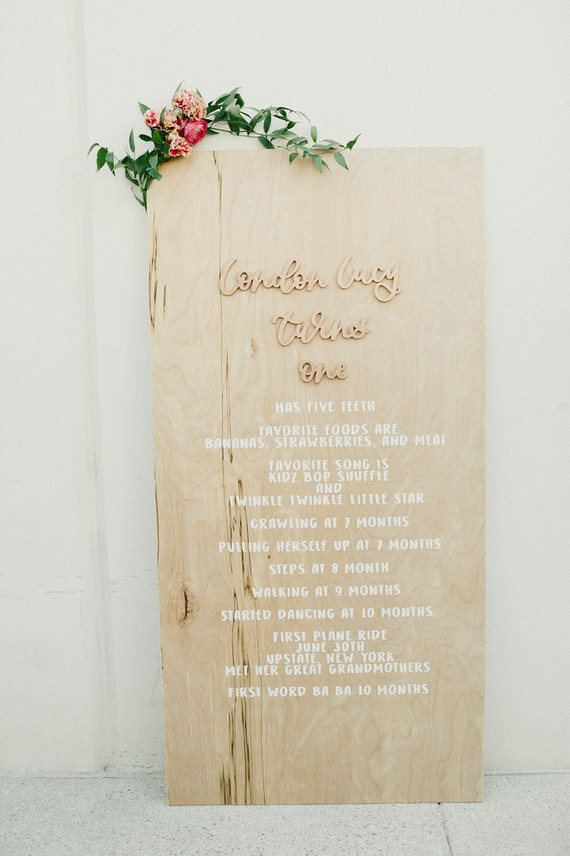 London Lucy
turns
one
HAS FIVE TEETH
FAVORITE FOODS ARE
BANANAS, STRAWBERRIES, AND MEAT
FAVORITE SONG IS
KIDZ BOP SHUFFLE
AND
TWINKLE TWINKLE LITTLE STAR
CRAWLING AT 7 MONTHS
PULLING HERSELF UP AT 7 MONTHS
STEPS AT 8 MONTH
WALKING AT 9 MONTHS
STARTED DANCING AT 10 MONTHS
FIRST PLANE RIDE
JUNE 30TH
UPSTATE, NEW YORK
MET HER GREAT GRANDMOTHERS
FIRST WORD BA BA 10 MONTHS